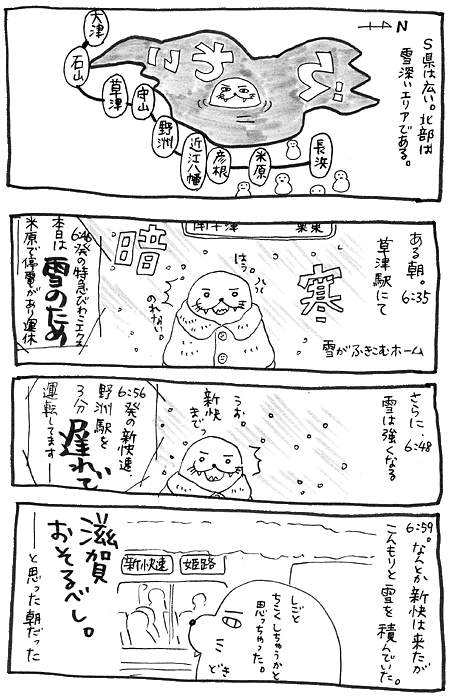 S県は広い。北部は
雪深いエリアである。
N
大津
石山
草津
守山
野洲
近江八幡
彦根
米原
長浜
ある朝。6:35
草津駅にて
寒
雪がふきこむホーム
暗
はぅ。
のれない。
6:46発の特急びわこエクス
本日は雪のため
米原で停電があり運休
さらに…6:48
雪は強くなる
うお。
新快
きでっ
6:56発の新快速
野洲駅を
3分遅れて
運転してます―
6:59。なんとか新快は来たが
こんもりと雪を積んでいた。
新快速
姫路
しごと
ちこくしちゃうかと
思っちゃった。
どき
滋賀
おそるべし。
――と思った朝だった